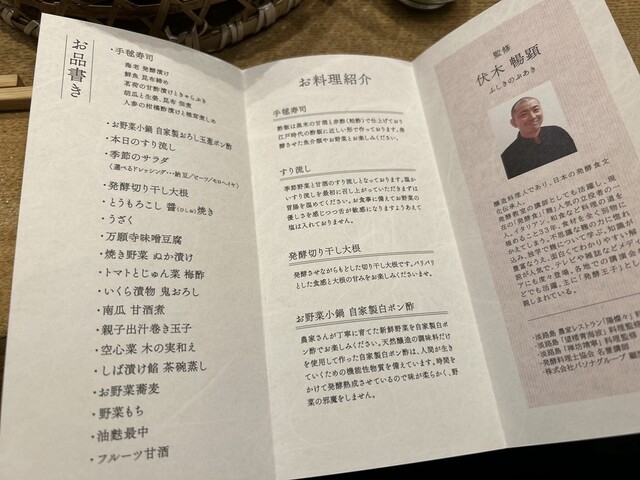 お品書き
・手毬寿司
海老 発酵漬け
鮮魚 昆布締め
茗荷の甘酢漬けときゅらぶき
胡瓜と生姜、昆布 佃煮
人参の柑橘酢漬けと椎茸煮しめ
・お野菜小鍋 自家製おろし玉葱ポン酢
・本日のすり流し
・季節のサラダ
（選べるドレッシング…納豆／ビーツ／モロヘイヤ）
・発酵切り干し大根
・とうもろこし 醤(ひしお)焼き
・うざく
・万願寺味噌豆腐
・焼き野菜 ぬか漬け
・トマトとじゅん菜 梅酢
・いくら漬物 鬼おろし
・南瓜 甘酒煮
・親子出汁巻き玉子
・空心菜 木の実和え
・しば漬け餡 茶碗蒸し
・お野菜蕎麦
・野菜もち
・油麩最中
・フルーツ甘酒
お料理紹介
手毬寿司
酢飯は黒米の甘酒と赤酢(粕酢)で仕上げており
江戸時代の酢飯に近しい形で作っております。発
酵させた魚介類やお野菜とお楽しみください。
すり流し
季節野菜と甘酒のすり流しとなっております。温か
いすり流しを最初に召し上がっていただきますは
胃腸を温めてください。お食事に備えてお野菜の
優しさを感じつつ舌が敏感になりますようあえて
塩は入れておりません。
発酵切り干し大根
発酵させながらもどした切り干し大根です。パリパリ
とした食感と大根の甘みをお楽しみくださいませ。
お野菜小鍋 自家製白ポン酢
農家さんが丁寧に育てた新鮮野菜を自家製白ポ
ン酢でお楽しみください。天然醸造の調味料だけ
を使用して作った自家製白ポン酢は、人間が生き
ていくための機能性物質を備えています。時間を
かけて発酵熟成させているので味が柔らかく、野
菜の邪魔をしません。
監修
伏木 暢顕
ふしきのぶあき
醸造料理人であり、日本の発酵食文
化伝承人。
発酵教室の講師としても活躍し、現
在の「発酵食」「麹」人気の立役者の一
人。イタリアンと和食など料理の道を
極めること33年。食材を余す所無く
使い